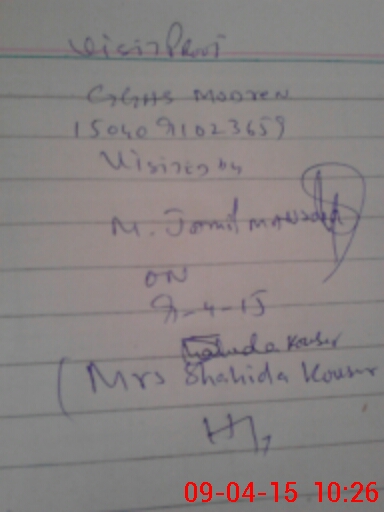 Visit Proof
GGHS MODREN
1504091023659
Visited by
M. Jamil
ON
9-4-15
Shahida Kousar
(Mrs Shahida Kousar
09-04-15 10:26